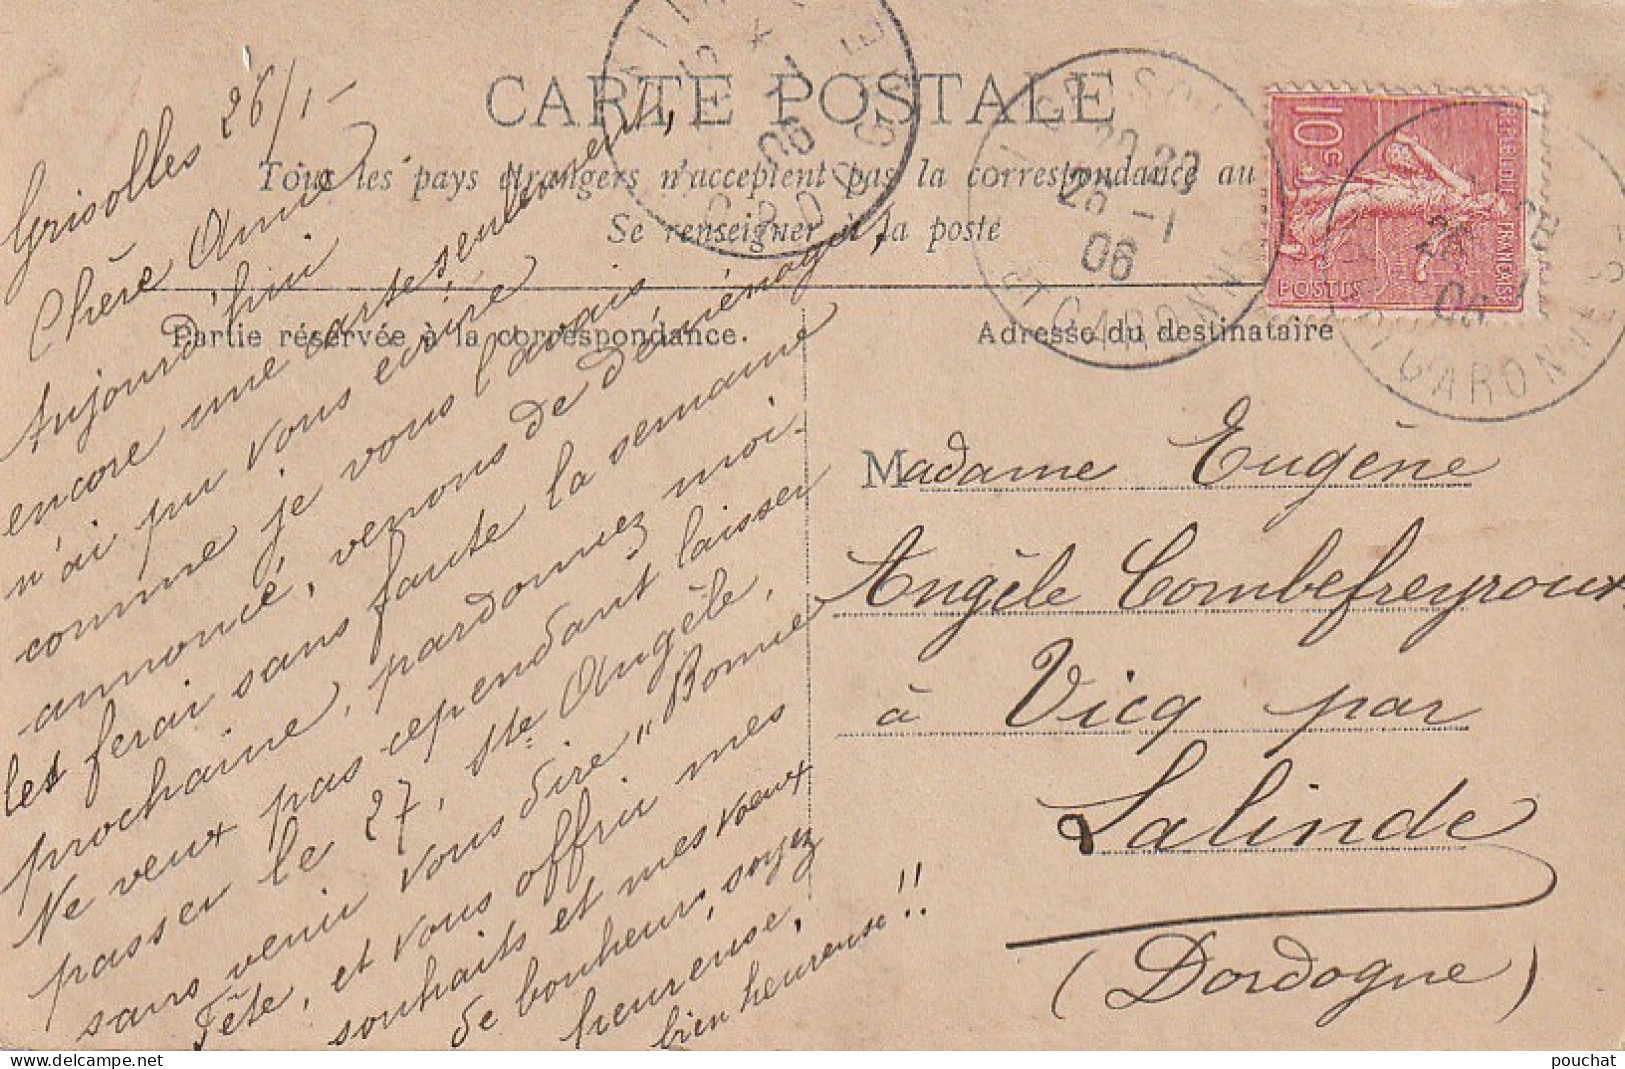 CARTE POSTALE
Tous les pays étrangers n'acceptent pas la correspondance au
Se renseigner à la poste
Partie réservée à la correspondance.
Adresse du destinataire
Grisolles 26/1-
Chère Amie
Aujourd'hui
encore une carte seulement,
n'ai pu vous écrire
comme je vous l'avais
annoncé, venons de déménager,
les ferai sans faute la semaine
prochaine, pardonnez moi.
Ne veux pas cependant laisser
passer le 27, Ste Angèle,
sans venir vous dire "Bonne
Fête, et vous offrir mes
souhaits et mes vœux
de bonheur, soyez
heureuse,
bien heureuse!!
10c
POSTES
FRANÇAISE
GRISOLLES
26 -1
06
T GARONNE
06
T GARONNE
06
DORDOGNE
Madame Eugène
Angèle Combefreyroux
à Vicq par
Lalinde
(Dordogne)
pouchat